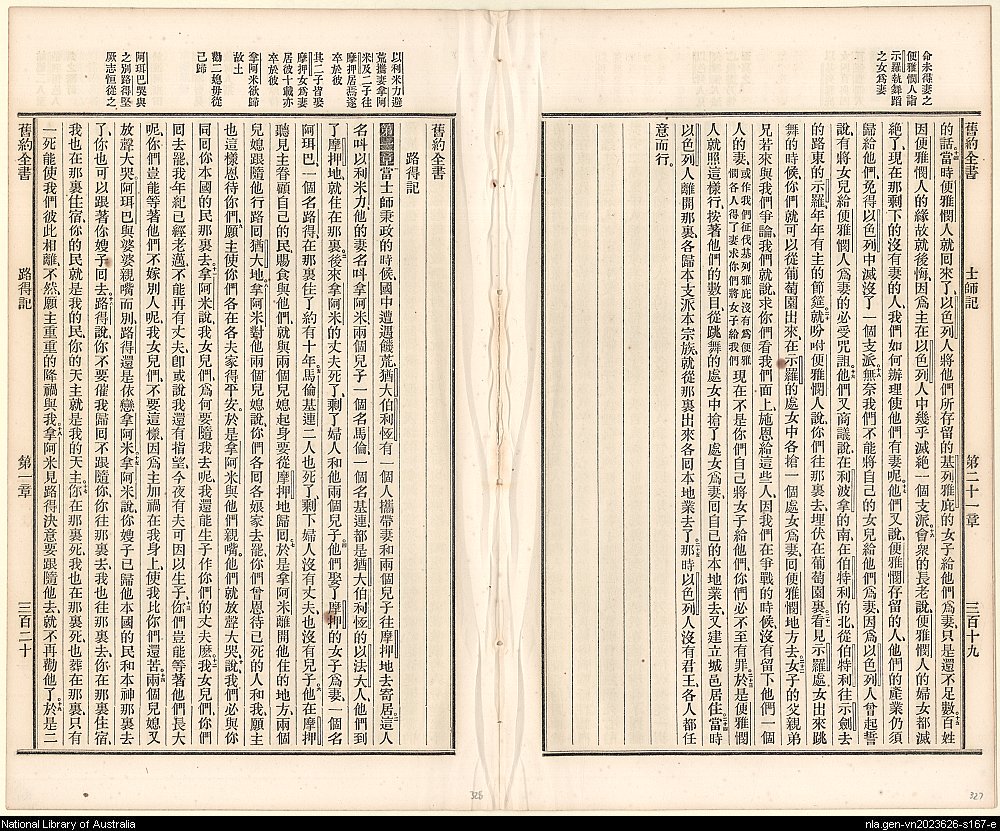 命未得妻之
便雅憫人詣
示羅執舞蹈
之女爲妻
舊約全書 士師記 第二十一章 三百十九
的話當時便雅憫人就回來了以色列人將他們所存留的基列雅庇的女子給他們爲妻只是還不足數百姓
因便雅憫人的緣故就後悔因爲主在以色列人中幾乎滅絕一個支派會衆的長老說便雅憫人的婦女都滅
絕了現在那剩下的沒有妻的人我們如何辦理使他們有妻呢他們又說便雅憫存留的人他們的產業仍須
歸給他們免得以色列中滅沒了一個支派無奈我們不能將自己的女兒給他們爲妻因爲以色列人曾起誓
說有將女兒給便雅憫人爲妻的必受咒詛他們又商議說在利波拿的南在伯特利的北從伯特利往示劍去
的路東的示羅年年有主的節筵就吩咐便雅憫人說你們往那裏去埋伏在葡萄園裏看見示羅處女出來跳
舞的時候你們就可以從葡萄園出來在示羅的處女中各搶一個處女爲妻回便雅憫地方去女子的父親弟
兄若來與我們爭論我們就說求你們看我們面上施恩給這些人因我們在爭戰的時候沒有留下他們一個
人的妻或作我們征伐基列雅庇沒有爲便雅憫各人得了妻求你們將女子給我們現在不是你們自己將女子給他們你們必不至有罪於是便雅憫
人就照這樣行按著他們的數目從跳舞的處女中搶了處女爲妻回自己的本地業去又建立城邑居住當時
以色列人離開那裏各歸本支派本宗族就從那裏出來各回本地業去了那時以色列人沒有君王各人都任
意而行
以利米力避
荒攜妻拿阿
米及二子往
摩押居焉遂
卒於彼
其二子皆娶
摩押女爲妻
居彼十載亦
卒於彼
拿阿米欲歸
故土
勸二媳毋從
己歸
阿珥巴哭與
之別路得堅
厥志恒從之
舊約全書
路得記
第一章當士師秉政的時候國中遭遇饑荒猶大伯利恆有一個人攜帶妻和兩個兒子往摩押地去寄居這人
名叫以利米力他的妻名叫拿阿米兩個兒子一個名馬倫一個名基連都是猶大伯利恆的以法大人他們到
了摩押地就住在那裏後來拿阿米的丈夫死了剩了婦人和他兩個兒子他們娶了摩押的女子爲妻一個名
阿珥巴一個名路得在那裏住了約有十年馬倫基連二人也死了剩下婦人沒有丈夫也沒有兒子他在摩押
聽見主眷顧自己的民賜食與他們就與兩個兒媳起身要從摩押地歸回於是拿阿米離開他住的地方兩個
兒媳跟隨他行路回猶大地拿阿米對他兩個兒媳說你們各回各娘家去罷你們曾恩待已死的人和我願主
也這樣恩待你們願主使你們各在各夫家得平安於是拿阿米與他們親嘴他們就放聲大哭說我們必與你
同回你本國的民那裏去拿阿米說我女兒們爲何要隨我去呢我還能生子作你們的丈夫麼我女兒們你們
回去罷我年紀已經老邁不能再有丈夫卽或說我還有指望今夜有夫可因以生子你們豈能等著他們長大
呢你們豈能等著他們不嫁別人呢我女兒們不要這樣因爲主加禍在我身上使我比你們還苦兩個兒媳又
放聲大哭阿珥巴與婆婆親嘴而別路得還是依戀拿阿米拿阿米說你嫂子已歸他本國的民和本神那裏去
了你也可以跟著你嫂子回去路得說你不要催我歸回不跟隨你你往那裏去我也往那裏去你在那裏住宿
我也在那裏住宿你的民就是我的民你的天主就是我的天主你在那裏死我也在那裏死也葬在那裏只有
一死能使我們彼此相離不然願主重重的降禍與我拿阿米見路得決意要跟隨他去就不再勸他了於是二
舊約全書 路得記 第一章 三百二十
328
327
National Library of Australia
nla.gen-vn2023626-s167-e